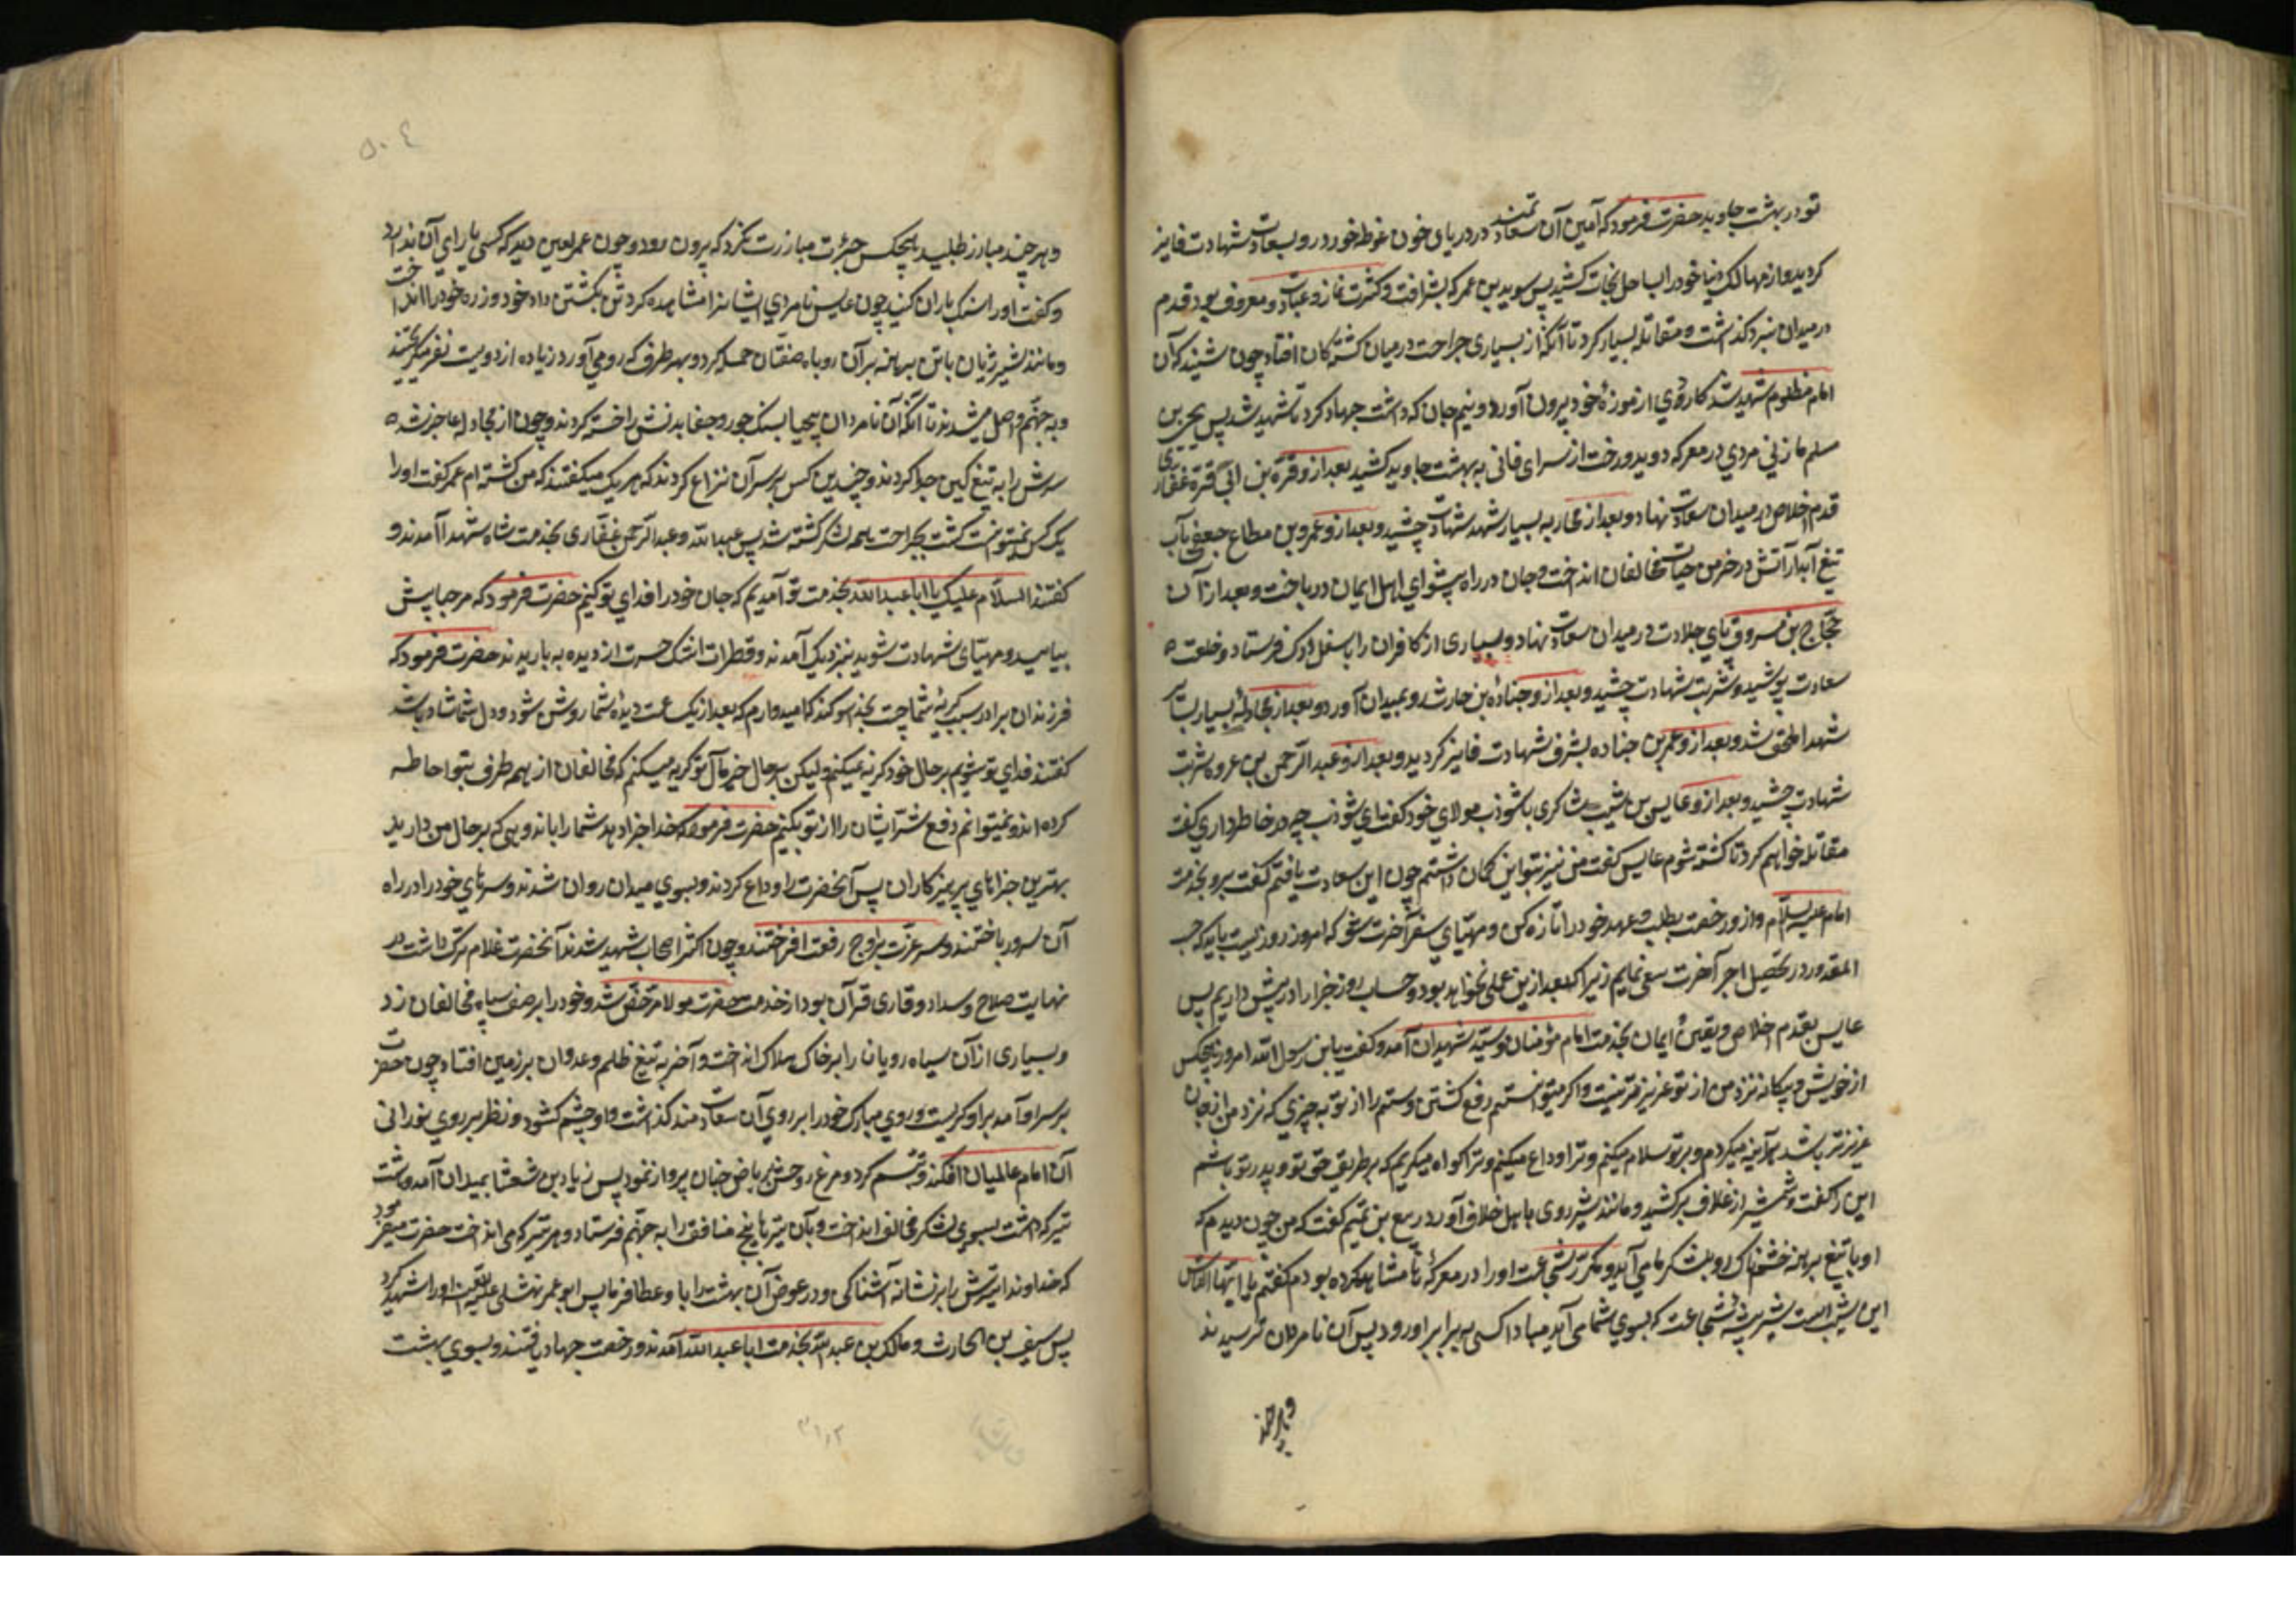 تو در بهشت جاوید حضرت فرمود که آمین آن سعادتمند در دریای خون غوطه خورد و بسعادت شهادت فایز
کردید و از مهالک دنیا خود را بساحل نجات کشید پس سوید بن عمر که بشرافت و کثرت نماز و عبادت معروف بود قدم
در میدان نبرد گذاشت و مقاتله بسیار کرد تا آنکه از بسیاری جراحت در میان کشتگان افتاد چون شنید که آن
امام مظلوم شهید شد کاردی از موزهٔ خود بیرون آورد و بنیم جان که داشت جهاد کرد تا شهید شد پس یحیی بن
سلم مازنی مردی در معرکه دوید و رخت از سرای فانی به بهشت جاوید کشید بعد از و قرة بن ابی قرة غفاری
قدم اخلاص در میدان سعادت نهاد و بعد از محاربه بسیار شهد شهادت چشید و بعد از و عمرو بن مطاع جعفی بآب
تیغ آبدار آتش در خرمن حیات مخالفان انداخت و جان در راه پیشوای اهل ایمان در باخت و بعد از آن
حجاج بن مسروق پای جلادت در میدان سعادت نهاد و بسیاری از کافران را باسفل درک فرستاد و خلعت
سعادت پوشید و شربت شهادت چشید و بعد از و جنادة بن حارث رو بمیدان آورد و بعد از مجادلهٔ بسیار بسایر
شهدا ملحق شد و بعد از و عمر بن جناده بشرف شهادت فایز کردید و بعد از و عبد الرحمن بن عروه شربت
شهادت چشید و بعد از و عابس بن شبیب شاکری با شوذب مولای خود گفت ای شوذب چه در خاطر داری گفت
مقاتله خواهم کرد تا کشته شوم عابس گفت من نیز بتو این گمان داشتم چون این سعادت یافتم گفت برو بخدمت
امام علیه السلام و ازو رخصت بطلب و عهد خود را تازه کن و مهیای سفر آخرت شو که امروز روزیست باید که حسب
المقدور در تحصیل اجر آخرت سعی نمایم زیرا که بعد ازین عملی نخواهد بود و حساب روز جزا را در پیش داریم پس
عابس بقدم اخلاص و یقین و ایمان بخدمت امام مؤمنان و سید شهیدان آمد و گفت یابن رسول الله امروز هیچکس
از خویش و بیگانه نزد من از تو عزیزتر نیست و اگر میتوانستم رفع کشتن و ستم را از تو به چیزی که نزد من از جان
عزیزتر باشد هرآینه میکردم و بر تو سلام میکنم و ترا وداع میکنم و ترا گواه میگیرم که بر طریق حق تو و پدر تو باشم
این را گفت و شمشیر از غلاف بر کشید و مانند شیر روی باهل خلاف آورد ربیع بن تمیم گفت که من چون دیدم که
او با تیغ برهنه خشمناک رو بلشکر ما می آید و مکرر شجاعت او را در معرکه ها مشاهده کرده بودم گفتم یا ایها الناس
این شیر بیشه شجاعت که بسوی شما می آید مبادا کسی به برابر او رود پس آن نامردان ترسیدند
و هر چند
و هر چند مبارز طلبید هیچکس جرئت مبارزت نکرد که بیرون رود و چون عمر لعین دید که کسی یارای آن ندارد
و گفت او را سنگ باران کنید چون عابس نامردی ایشانرا مشاهده کرد تن بکشتن داد خود و زره خود را انداخت
و مانند شیر ژیان با تن برهنه بر آن روباه صفتان حمله کرد و بهر طرف که رو می آورد زیاده از دویست نفر میگریختند
و به جهنم واصل میشدند تا آنکه آن نامردان بیحیا بسنگ جور و جفا بدنش را خسته کردند و چون از مجادله عاجز شد
سرش را به تیغ کین جدا کردند و چندین کس بر سر آن نزاع کردند که هر یک میگفتند که من کشته ام عمر گفت او را
یک کس نمیتوانست کشت بجراحت همه لشکر کشته شد پس عبد الله و عبد الرحمن غفاری بخدمت شاه شهدا آمدند و
گفتند السلام علیک یا ابا عبد الله بخدمت تو آمدیم که جان خود را فدای تو کنیم حضرت فرمود که مرحبا پیش
بیایید و مهیای شهادت شوید نزدیک آمدند و قطرات اشک حسرت از دیده ها باریدند حضرت فرمود که
فرزندان برادر سبب گریهٔ شما چیست بخدا سوگند که امیدوارم که بعد از یک ساعت دیدهٔ شما روشن شود و دل شما شاد باشد
گفتند فدای تو شویم بر حال خود گریه نمیکنیم ولیکن بر حال خیر مآل تو گریه میکنیم که مخالفان از همه طرف بتو احاطه
کرده اند و نمیتوانیم دفع شر ایشان را از تو بکنیم حضرت فرمود که خدا جزا دهد شما را باندوهی که بر حال من دارید
بهترین جزاهای پرهیزکاران پس آنحضرت را وداع کردند و بسوی میدان روان شدند و سرهای خود را در راه
آن سرور باختند و سر عزت بر اوج رفعت افراختند و چون اکثر اصحاب شهید شدند آنحضرت غلام ترک داشت در
نهایت صلاح و سداد و قاری قرآن بود از خدمت حضرت مولا مرخص شد و خود را بر صف سپاه مخالفان زد
و بسیاری از آن سیاه رویان را بر خاک هلاک انداخت و آخر به تیغ ظلم و عدوان بر زمین افتاد چون حضرت
بر سر او آمد بر او گریست و روی مبارک خود را بر روی آن سعادتمند گذاشت و او چشم کشود و نظر بر روی نورانی
آن امام عالمیان افکند و تبسم کرد و مرغ روحش بریاض جنان پرواز نمود پس زیاد بن شعثا بمیدان آمد و هشت
تیر که داشت بسوی لشکر مخالف انداخت و بآن تیرها پنج منافق را به جهنم فرستاد و هر تیر که می انداخت حضرت میفرمود
که خداوندا تیرش را بر نشانه آشنا کن و در عوض آن بهشت را باو عطا فرما پس ابو عمر نهشلی او را شهید کرد
پس سیف بن الحارث و مالک بن عبد الله بخدمت ابا عبد الله آمدند و رخصت جهاد یافتند و بسوی بهشت